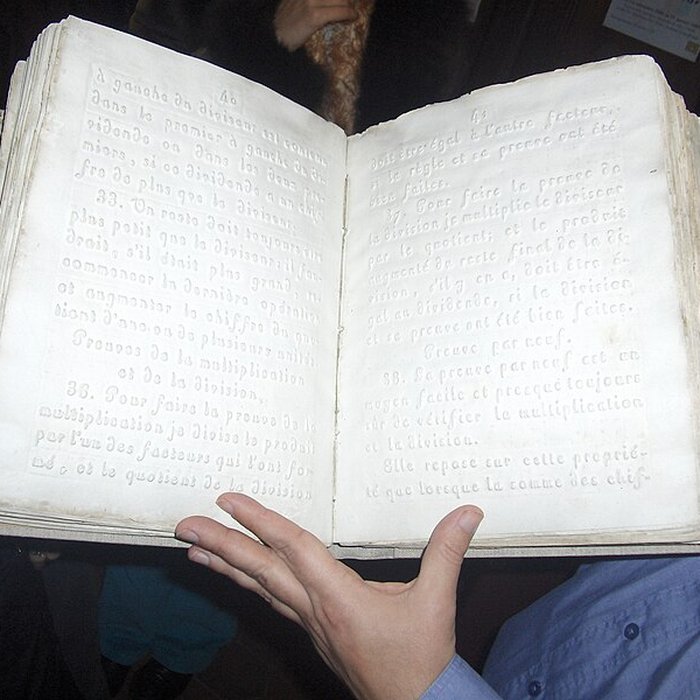 40
à gauche du diviseur est contenu
dans le premier à gauche du di-
vidende ou dans les deux pre-
miers, si ce dividende a un chif-
fre de plus que le diviseur.
35. Un reste doit toujours être
plus petit que le diviseur; il fau-
drait, s'il était plus grand, re-
commencer la dernière opération
et augmenter le chiffre du quo-
tient d'une ou de plusieurs unités
Preuves de la multiplication
et de la division.
36. Pour faire la preuve de la
multiplication je divise le produit
par l'un des facteurs qui l'ont for-
mé, et le quotient de la division
41
doit être égal à l'autre facteur,
si la règle et sa preuve ont été
bien faites.
37. Pour faire la preuve de
la division je multiplie le diviseur
par le quotient; et le produit
augmenté du reste final de la di-
vision, s'il y en a, doit être é-
gal au dividende, si la division
et sa preuve ont été bien faites.
Preuve par neuf.
38. La preuve par neuf est un
moyen facile et presque toujours
sûr de vérifier la multiplication
et la division.
Elle repose sur cette proprié-
té que lorsque la somme des chif-